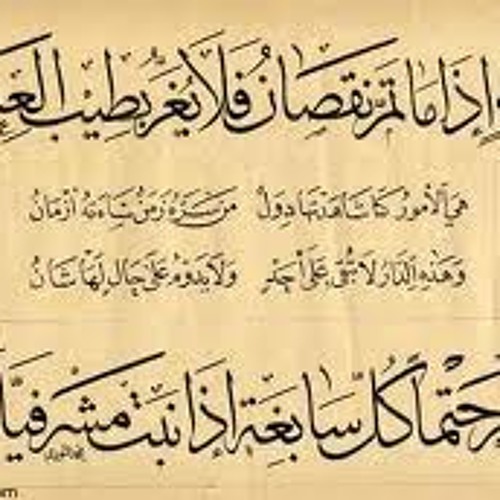 إِذَا مَا تَمَّ نُقْصَانُ فَلَا يُغَرَّ بِطِيبِ العَيـ
هِيَ الأُمُورُ كَمَا شَاهَدْتَهَا دُوَلٌ مَنْ سَرَّهُ زَمَنٌ سَاءَتْهُ أَزْمَانُ
وَهَذِهِ الدَّارُ لَا تُبْقِي عَلَى أَحَدٍ وَلَا يَدُومُ عَلَى حَالٍ لَهَا شَانُ
ـرُ حَتْمًا كُلَّ سَابِغَةٍ إِذَا نَبَتْ مَشْرَفِيَّا
om